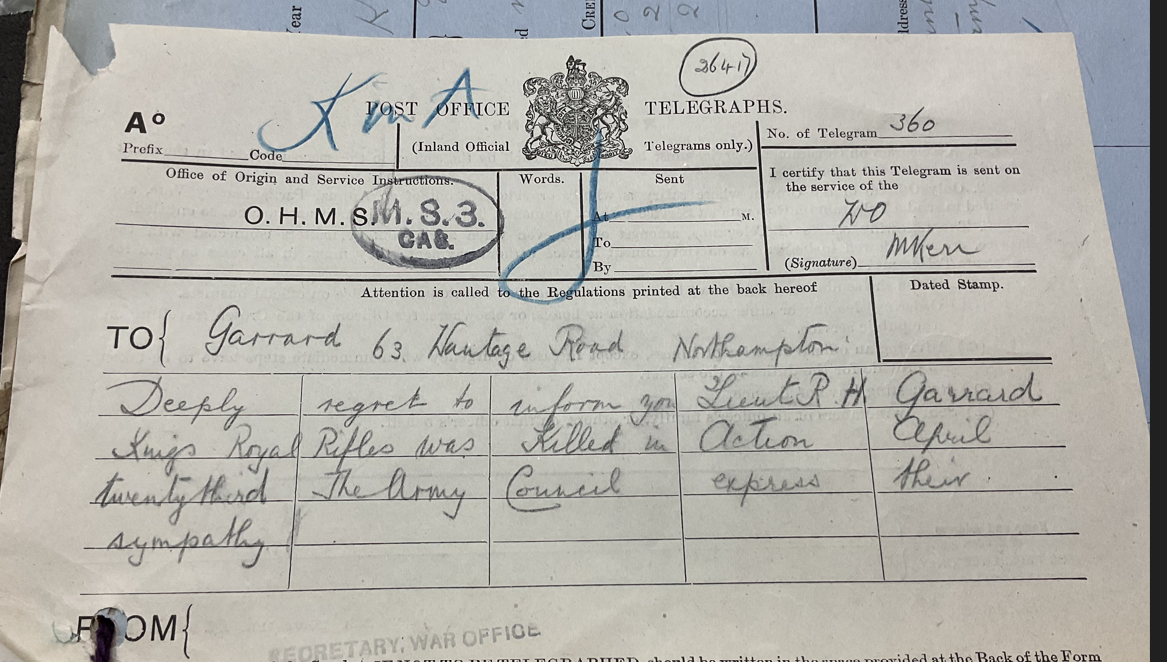 ear
Cre
ddress
26417
K in A
POST OFFICE TELEGRAPHS.
A°
Prefix Code
(Inland Official Telegrams only.)
No. of Telegram 360
Office of Origin and Service Instructions.
Words.
Sent
I certify that this Telegram is sent on
the service of the
WO
O. H. M. S.
M. S. 3.
CAS.
At M.
To
By
(Signature) MKerr
Attention is called to the Regulations printed at the back hereof
Dated Stamp.
TO{ Garrard 63, Wantage Road Northampton
Deeply regret to inform you Lieut R. H Garrard
Kings Royal Rifles was Killed in Action April
twenty third The Army Council express their
sympathy
FROM{
SECRETARY, WAR OFFICE
should be written in the space provided at the Back of the Form